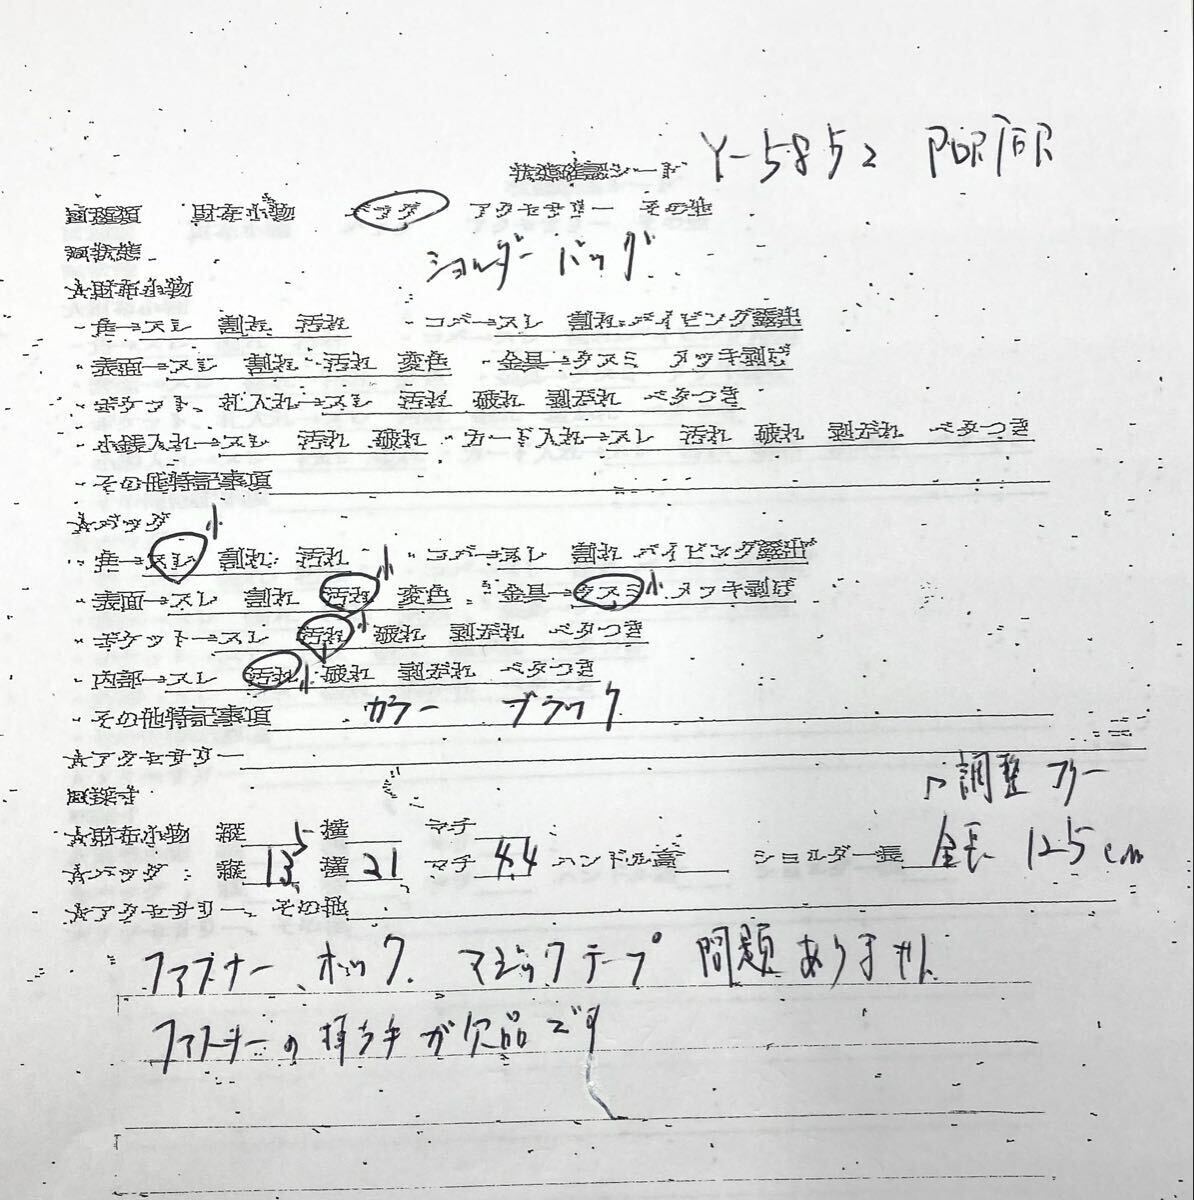 Y-5852 PORTER
状態確認シート
■種類 財布小物 バッグ アクセサリー その他
■状態
ショルダーバッグ
★財布小物
・角→スレ 割れ 汚れ ・コバ→スレ 割れ パイピング露出
・表面→スレ 割れ 汚れ 変色 ・金具→クスミ メッキ剥げ
・ポケット、札入れ→スレ 汚れ 破れ 剥がれ ベタつき
・小銭入れ→スレ 汚れ 破れ ・カード入れ→スレ 汚れ 破れ 剥がれ ベタつき
・その他特記事項
★バッグ
・角→スレ 小 割れ 汚れ ・コバ→スレ 割れ パイピング露出
・表面→スレ 割れ 汚れ 小 変色 ・金具→クスミ 小 メッキ剥げ
・ポケット→スレ 汚れ 小 破れ 剥がれ ベタつき
・内部→スレ 汚れ 小 破れ 剥がれ ベタつき
・その他特記事項 カラー ブラック
★アクセサリー
■採寸
調整フリー
★財布小物 縦 横 マチ
★バッグ : 縦 13.5 横 21 マチ 4.4 ハンドル高 ショルダー長 全長 125cm
★アクセサリー、その他
ファスナー、ホック、マジックテープ 問題ありません
ファスナーの持ち手が欠品です